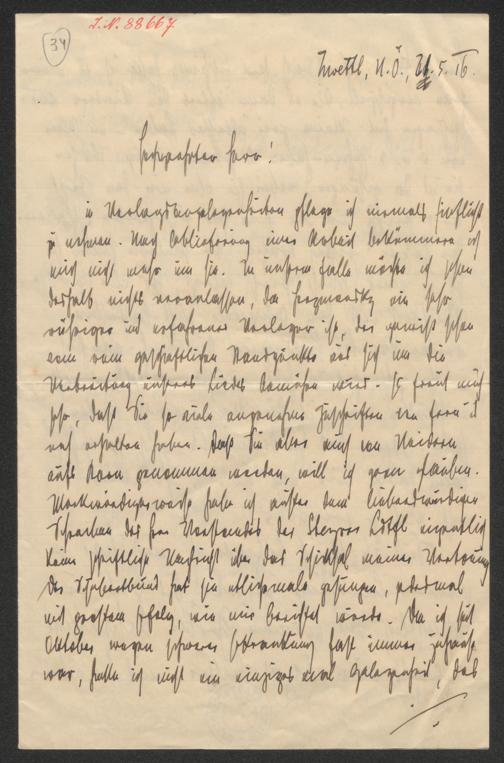 34
I.N. 88667
Zwettl, N.Ö., 21.5.16.
Sehr geehrter Herr!
in Verlagsangelegenheiten pflege ich niemals Einfluß
zu nehmen. Nach Ablieferung einer Arbeit bekümmere ich
mich nicht mehr um sie. In unserem Falle möchte ich schon
deshalb nichts veranlassen, da ein sehr
rühriger und erfahrener Verleger ist, der gewiß schon
vom rein geschäftlichen Standpunkte aus sich um die
Verbreitung unseres Liedes bemühen wird. Es freut mich
sehr, daß Sie so viele angenehme Zuschriften von
erhalten haben. Daß Sie aber auch von Neidern
aufs Korn genommen werden, will ich gern glauben.
Merkwürdigerweise habe ich außer dem liebenswürdigen
Schreiben des Herrn Vorstandes des eigentlich
keine schriftliche Nachricht über das Schicksal meiner Vertonung
Der Schubertbund hat sie etlichemale gesungen, jedesmal
mit großem Erfolg, wie mir berichtet wurde. Da ich seit
Oktober wegen schwerer Erkrankung fast immer zuhause
war, hatte ich nicht ein einziges mal Gelegenheit, das